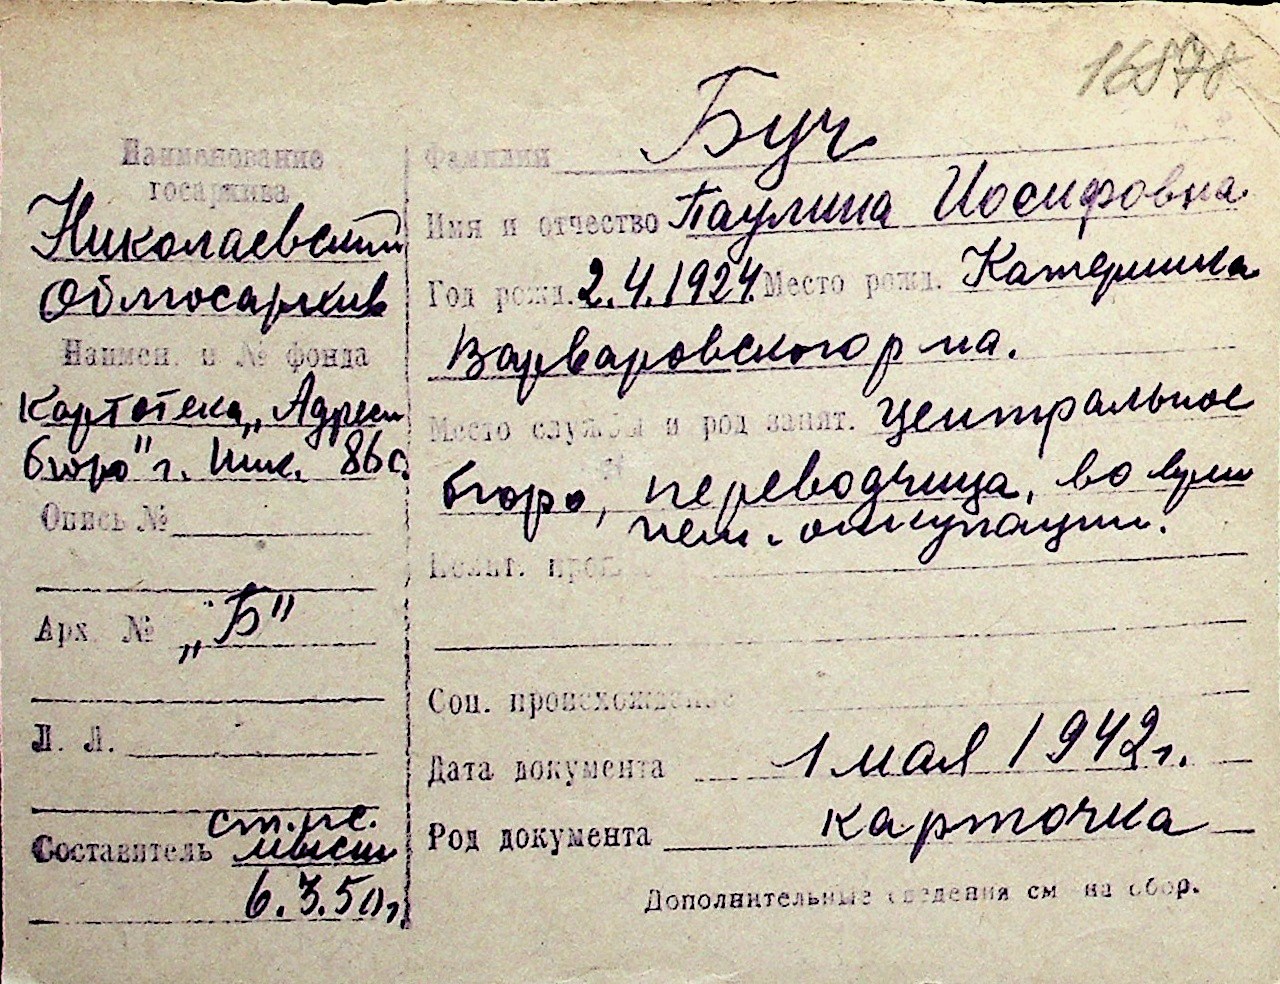 16878
Наименование
госархива
Николаевский
Облгосархив
Наимен. и № фонда
Картотека „Адресн
бюро" г. Ник. 86с.
Опись №
Арх. № „Б"
Л. Л.
Составитель
6.3.50г.
Фамилия Буч
Имя и отчество Паулина Иосифовна
Год рожд. 2.4.1924. Место рожд. Катеринка
Варваровского р-на.
Место службы и род занят. центральное
бюро, переводчица, во врем
нем. оккупации.
Соц. происхождение
Дата документа 1 мая 1942г.
Род документа карточка
Дополнительные сведения см на обор.